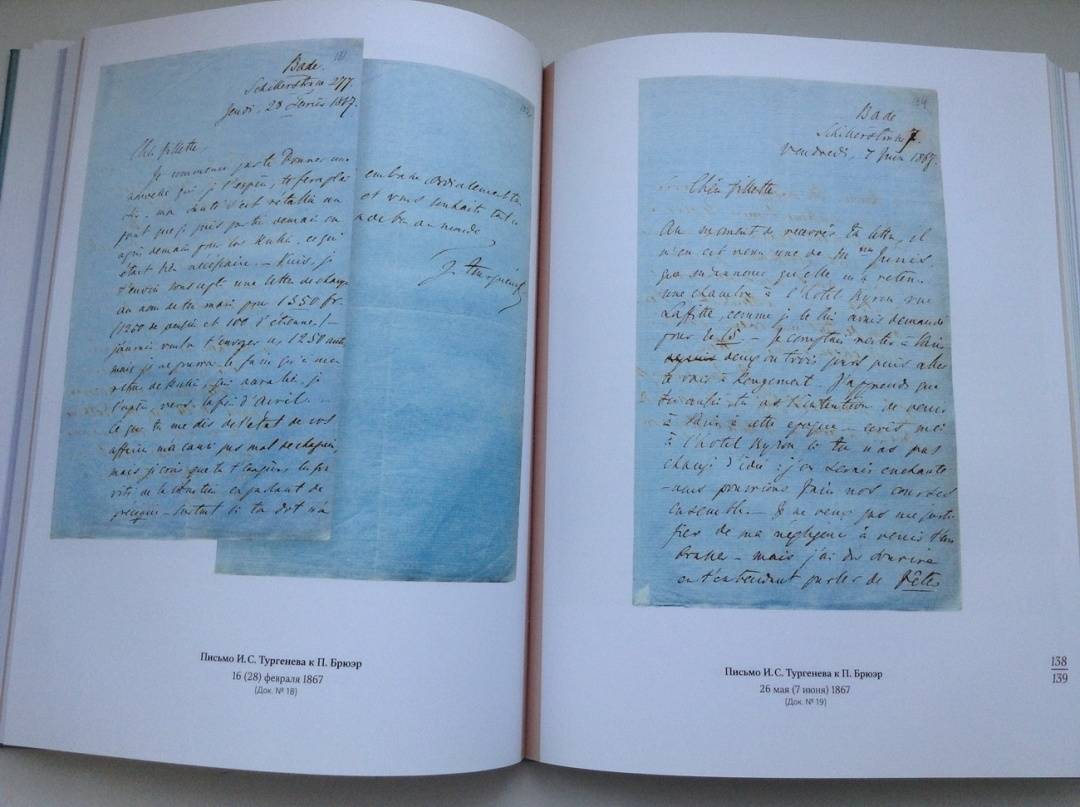 Bade.
Schillerstrasse 277.
Jeudi, 28 Février 1867.
Chère fillette,
Je commence par te donner une
nouvelle qui, je l'espère, te fera plai
sir, ma santé s'est rétablie au
point que je puis partir demain ou
après demain pour la Russie, ce qui
était très nécessaire. – Puis, je
t'envoie une lettre de change
au nom de ton mari pour 1350 fr.
(1250 de pension et 100 d'étrennes) –
j'aurais voulu t'envoyer 1250 autres
mais je ne pourrai le faire qu'à mon
retour de Russie, qui aura lieu, je
l'espère, vers la fin d'Avril. –
Ce que tu me dis de l'état de vos
affaires m'a causé pas mal de chagrin
mais je crois que tu t'exagères
de la situation en parlant de
surtout si ta dot n'a
embrasse cordialement
et vous souhaite tout
de bon au monde
J. Tourguéneff
Bade
Schillerstrasse 7.
Vendredi, 7 Juin 1867.
Chère fillette,
Au moment de recevoir ta lettre, il
m'en est venu une de Mme Innis,
qui m'annonce qu'elle m'a retenu
une chambre à l'hôtel Byron rue
Laffitte, comme je le lui avais demandé
pour le 15. – Je comptais rester à Paris
deux ou trois jours puis aller
te voir à Rougemont. J'apprends que
toi aussi tu as l'intention de venir
à Paris à cette époque – écris moi
à l'hôtel Byron si tu n'as pas
changé d'idée : j'en serais enchanté
nous pourrions faire nos courses
ensemble. – Je ne veux pas me justi
fier de ma négligence à venir
– mais j'ai dû sourire
en t'entendant parler de fêtes
Письмо И. С. Тургенева к П. Брюэр
16 (28) февраля 1867
(Док. № 18)
Письмо И. С. Тургенева к П. Брюэр
26 мая (7 июня) 1867
(Док. № 19)
138
139